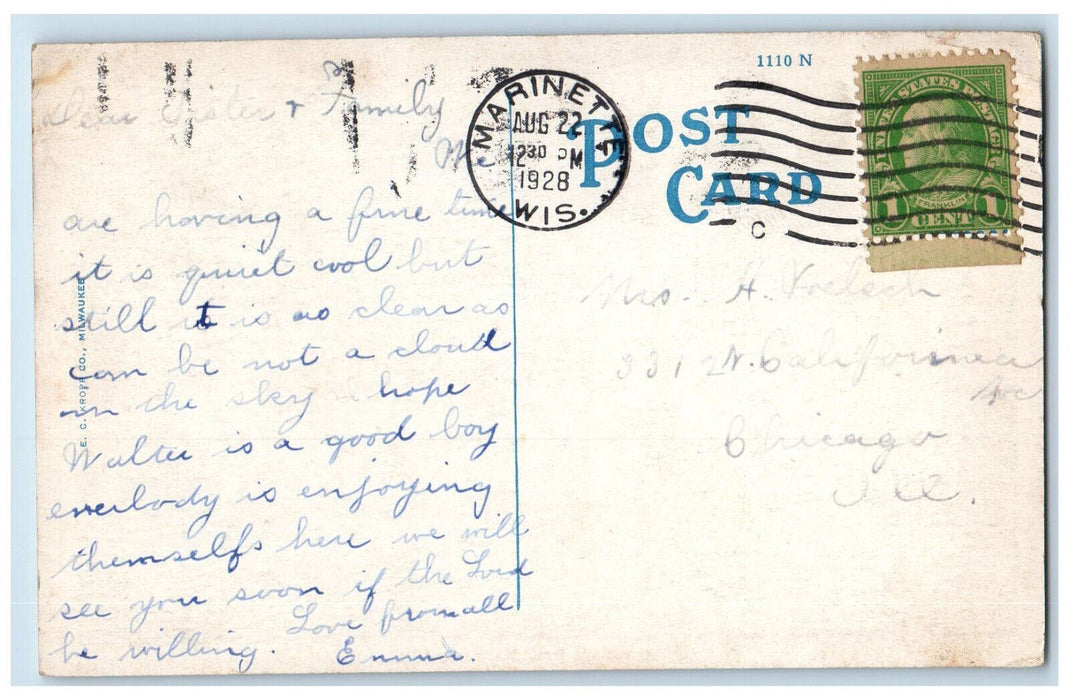 Dear Sister & Family
We
are having a fine time
it is quiet cool but
still it is as clear as
can be not a cloud
in the sky I hope
Walter is a good boy
everbody is enjoying
themselfs here we will
see you soon if the Lord
be willing. Love from all
Emma.
E. C. KROPP CO., MILWAUKEE
MARINETTE
AUG 22
12 30 PM
1928
WIS.
1110 N
POST
CARD
C
UNITED STATES POSTAGE
FRANKLIN
1 CENT 1
Mrs. H. Voelsch
3312 N. California
Ave
Chicago
Ill.